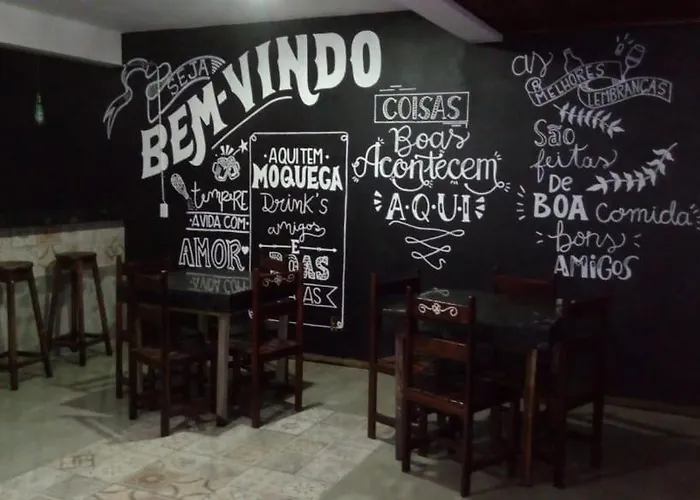 SEJA
BEM-VINDO
tempere
A VIDA COM
AMOR
AQUI TEM
MOQUEGA
Drink's
amigos
E
COISAS
Boas
Acontecem
AQUI
as
MELHORES
LEMBRANÇAS
São
feitas
DE
BOA Comida
bons
AMIGOS